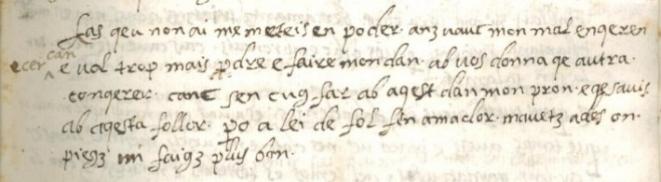 fas qeu non ai me meteis en poder. anz vauc mon mal enqeren
e cercan e vol trop mais pdre e faire mon dan. ab vos donna qe autra
conqerer. canc sen cug far ab aqest dan mon pron. e qe savis
ab aqesta follor. po a lei de fol fin amador. mavetz ades on
pieg mi faigz plus bon.